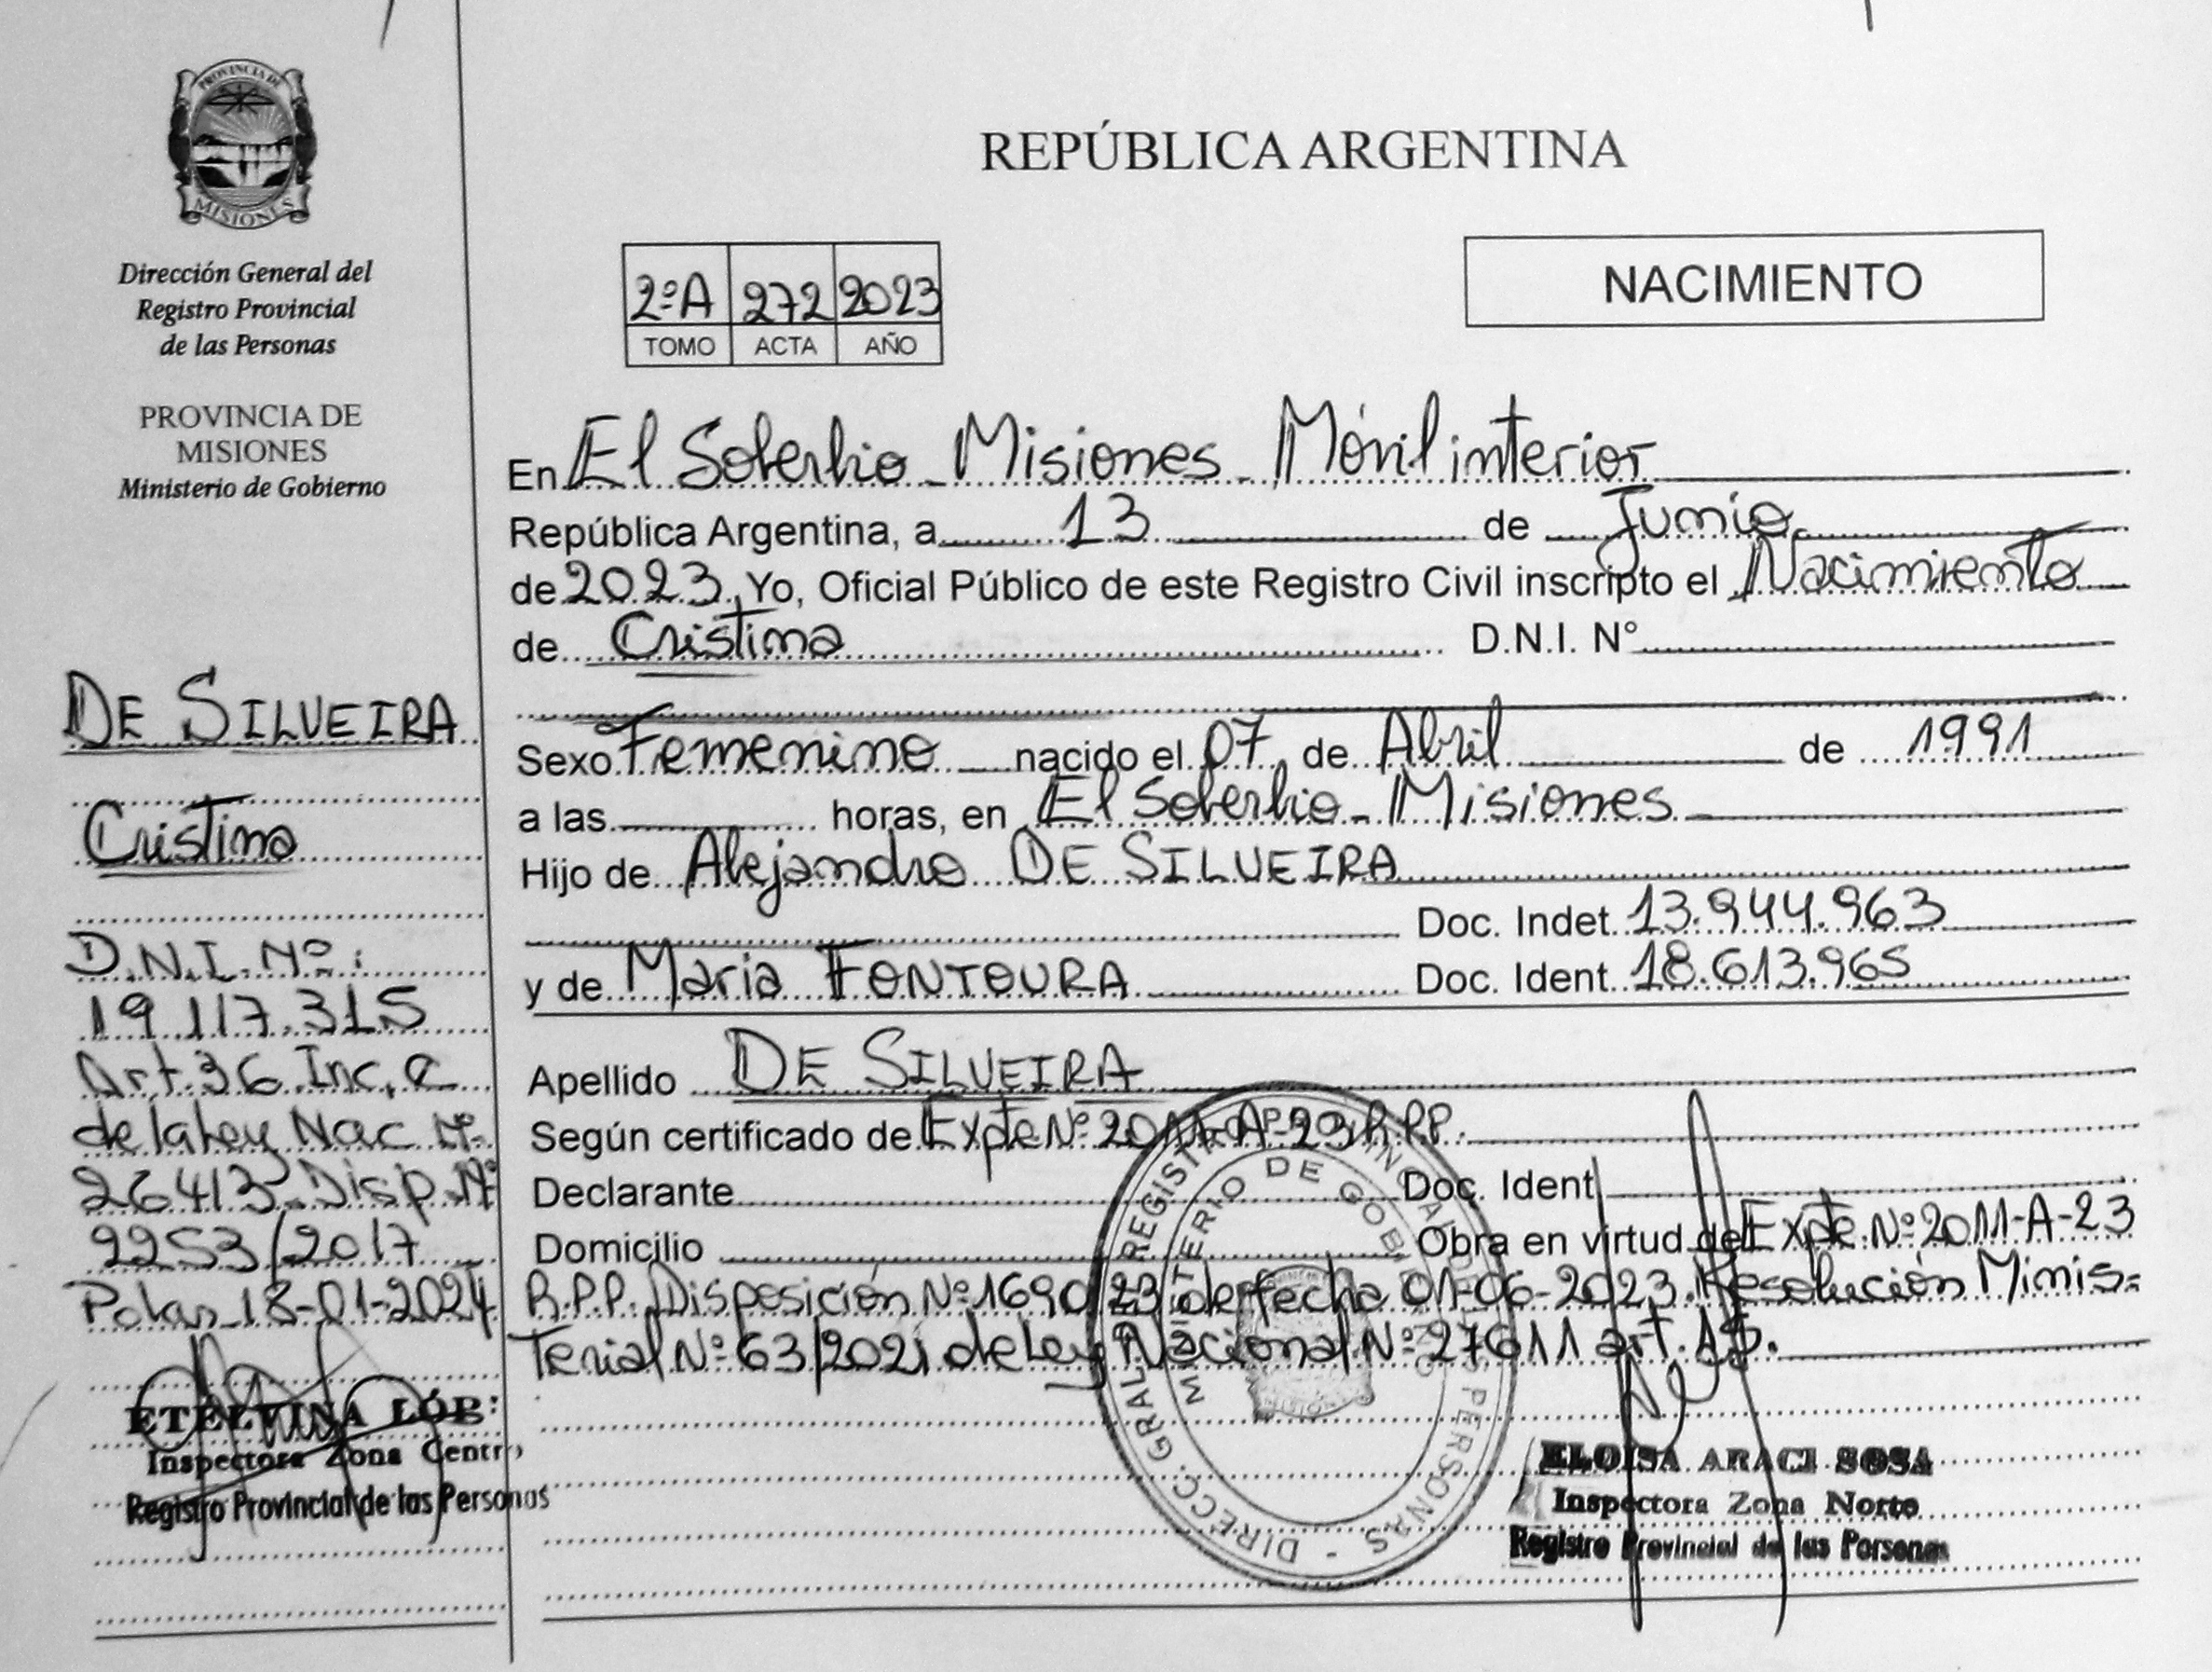 PROVINCIA DE
MISIONES
Dirección General del
Registro Provincial
de las Personas
PROVINCIA DE
MISIONES
Ministerio de Gobierno
DE SILVEIRA
Cristina
D.N.I. Nº:
19.117.315
Art.36 Inc. c
de la Ley Nac Nº
26413-Disp.Nº
2253/2017
18-01-2024
ETELVINA LÓP
Inspectora Zona Centro
Registro Provincial de las Personas
REPÚBLICA ARGENTINA
2ºA 272 2023
TOMO ACTA AÑO
NACIMIENTO
En El Soberbio - Misiones - Móvil interior
República Argentina, a 13 de Junio
de 2023 Yo, Oficial Público de este Registro Civil inscripto el Nacimiento
de Cristina D.N.I. N°
Sexo Femenino nacido el 07 de Abril de 1991
a las horas, en El Soberbio - Misiones
Hijo de Alejandro DE SILVEIRA
Doc. Indet. 13.944.963
y de Maria FONTOURA Doc. Ident. 18.613.965
Apellido DE SILVEIRA
Según certificado de Expte Nº 2011-A-23 R.P.P.
Declarante Doc. Ident
Domicilio Obra en virtud de Expte. Nº 2011-A-23
R.P.P. Disposición Nº 1690/23 de fecha 01-06-2023. Resolución Minis=
terial Nº 63/2021 de Ley Nacional Nº 27611 art. 15.
DIRECC. GRAL. REGISTRO PROVINCIAL DE LAS PERSONAS -
MINISTERIO DE GOBIERNO
ELOISA ARACI SOSA
Inspectora Zona Norte
Registro Provincial de las Personas